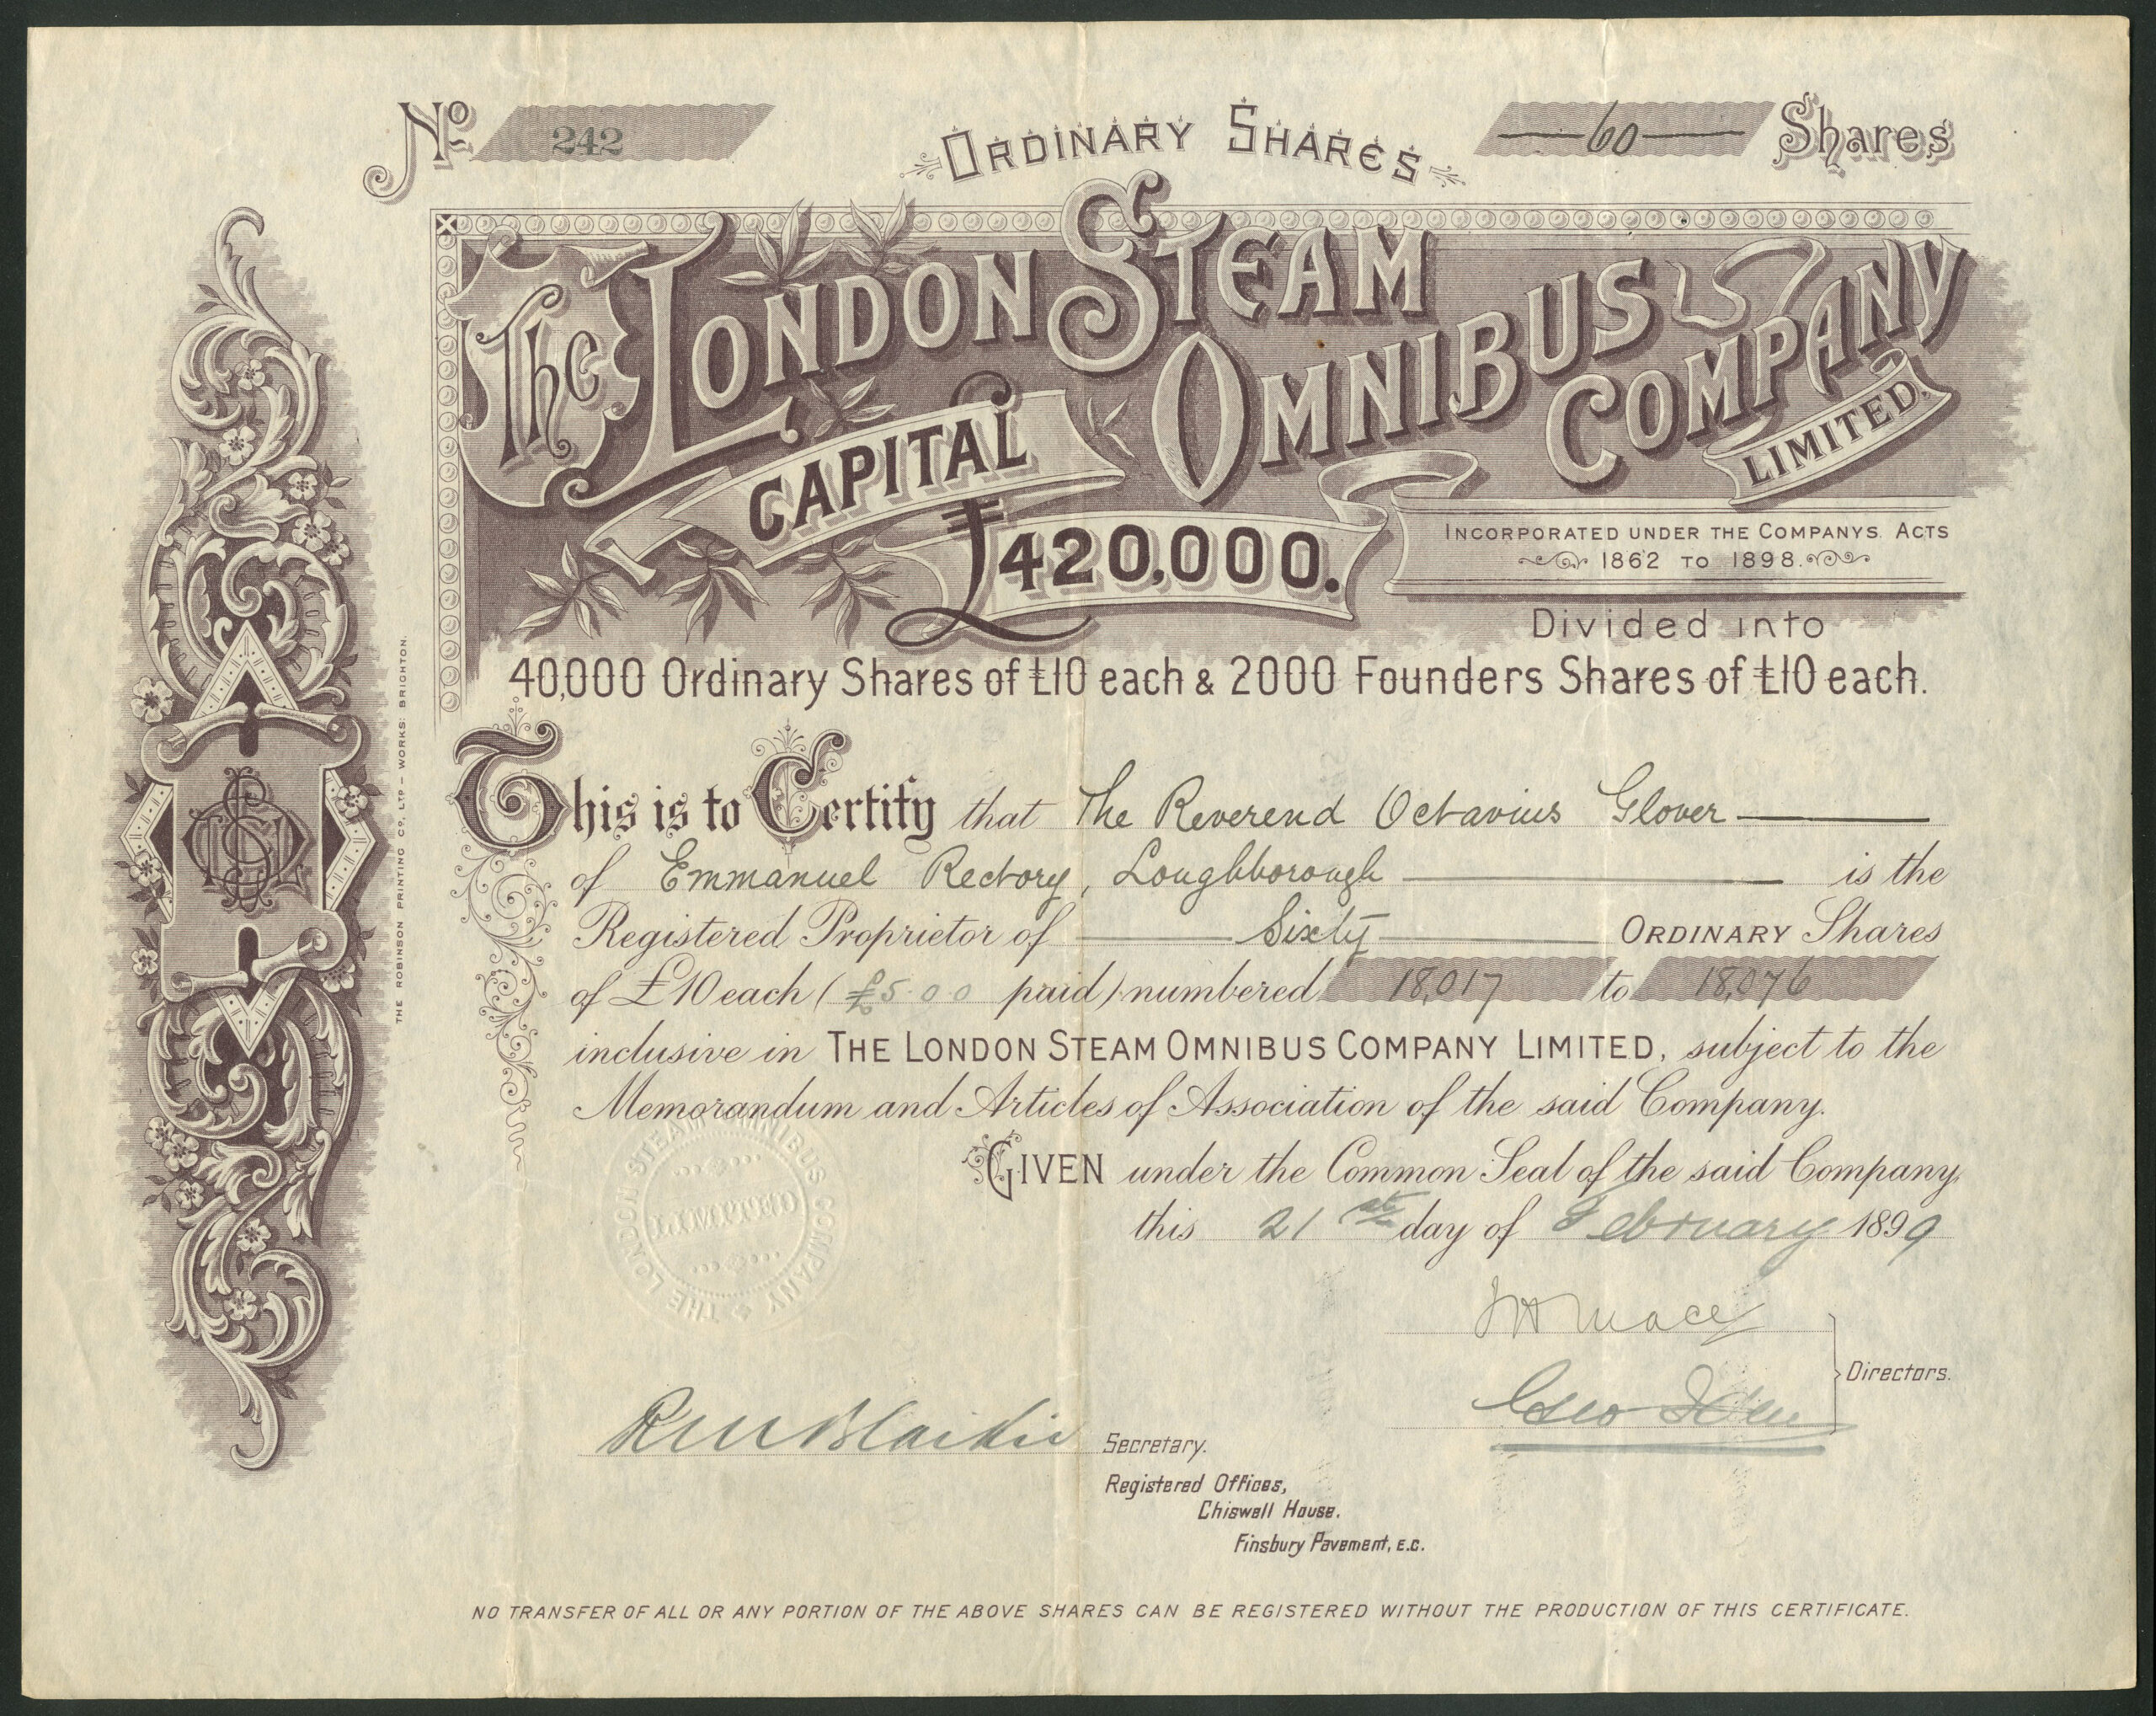 No 242
ORDINARY SHARES
60 Shares
The LONDON STEAM
OMNIBUS COMPANY
LIMITED.
CAPITAL
£420,000.
INCORPORATED UNDER THE COMPANYS. ACTS
1862 TO 1898.
Divided into
40,000 Ordinary Shares of £10 each & 2000 Founders Shares of £10 each.
This is to Certify that The Reverend Octavius Glover
of Emmanuel Rectory, Loughborough is the
Registered Proprietor of Sixty ORDINARY Shares
of £10 each (£5.0.0 paid) numbered 18,017 to 18,076
inclusive in THE LONDON STEAM OMNIBUS COMPANY LIMITED, subject to the
Memorandum and Articles of Association of the said Company.
GIVEN under the Common Seal of the said Company,
this 21st day of February 1899
THE LONDON STEAM OMNIBUS COMPANY
LIMITED
Directors.
Secretary.
Registered Offices,
Chiswell House.
Finsbury Pavement, E.C.
NO TRANSFER OF ALL OR ANY PORTION OF THE ABOVE SHARES CAN BE REGISTERED WITHOUT THE PRODUCTION OF THIS CERTIFICATE.
THE ROBINSON PRINTING CO., LTD – WORKS: BRIGHTON.